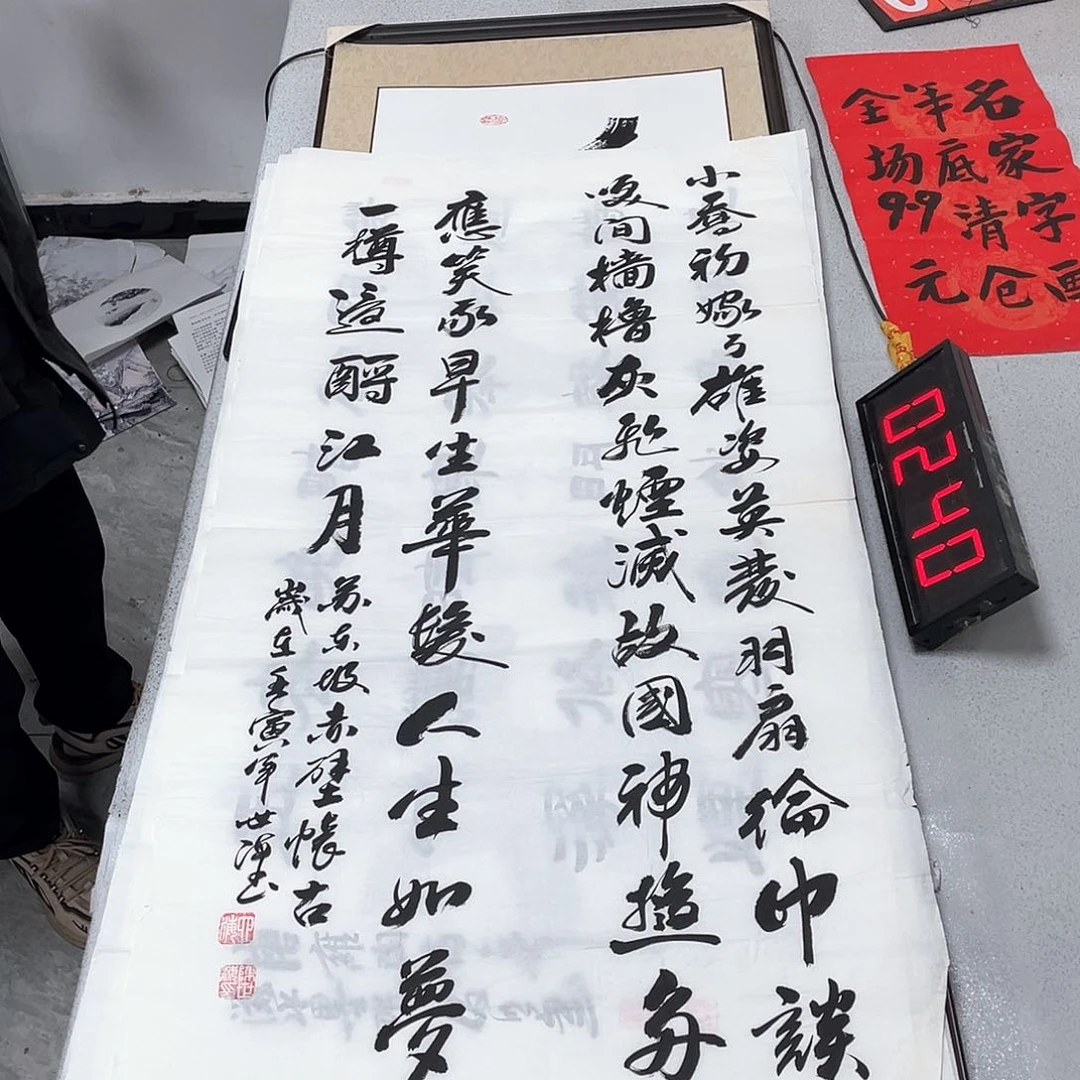 小喬初嫁了雄姿英發羽扇綸巾談
咲间檣櫓灰飛煙滅故國神遊多
應笑我早生華髮人生如夢
一樽還酹江月
苏东坡赤壁懷古
歲在壬寅年世
名家字画
年底清仓
全场99元
0240